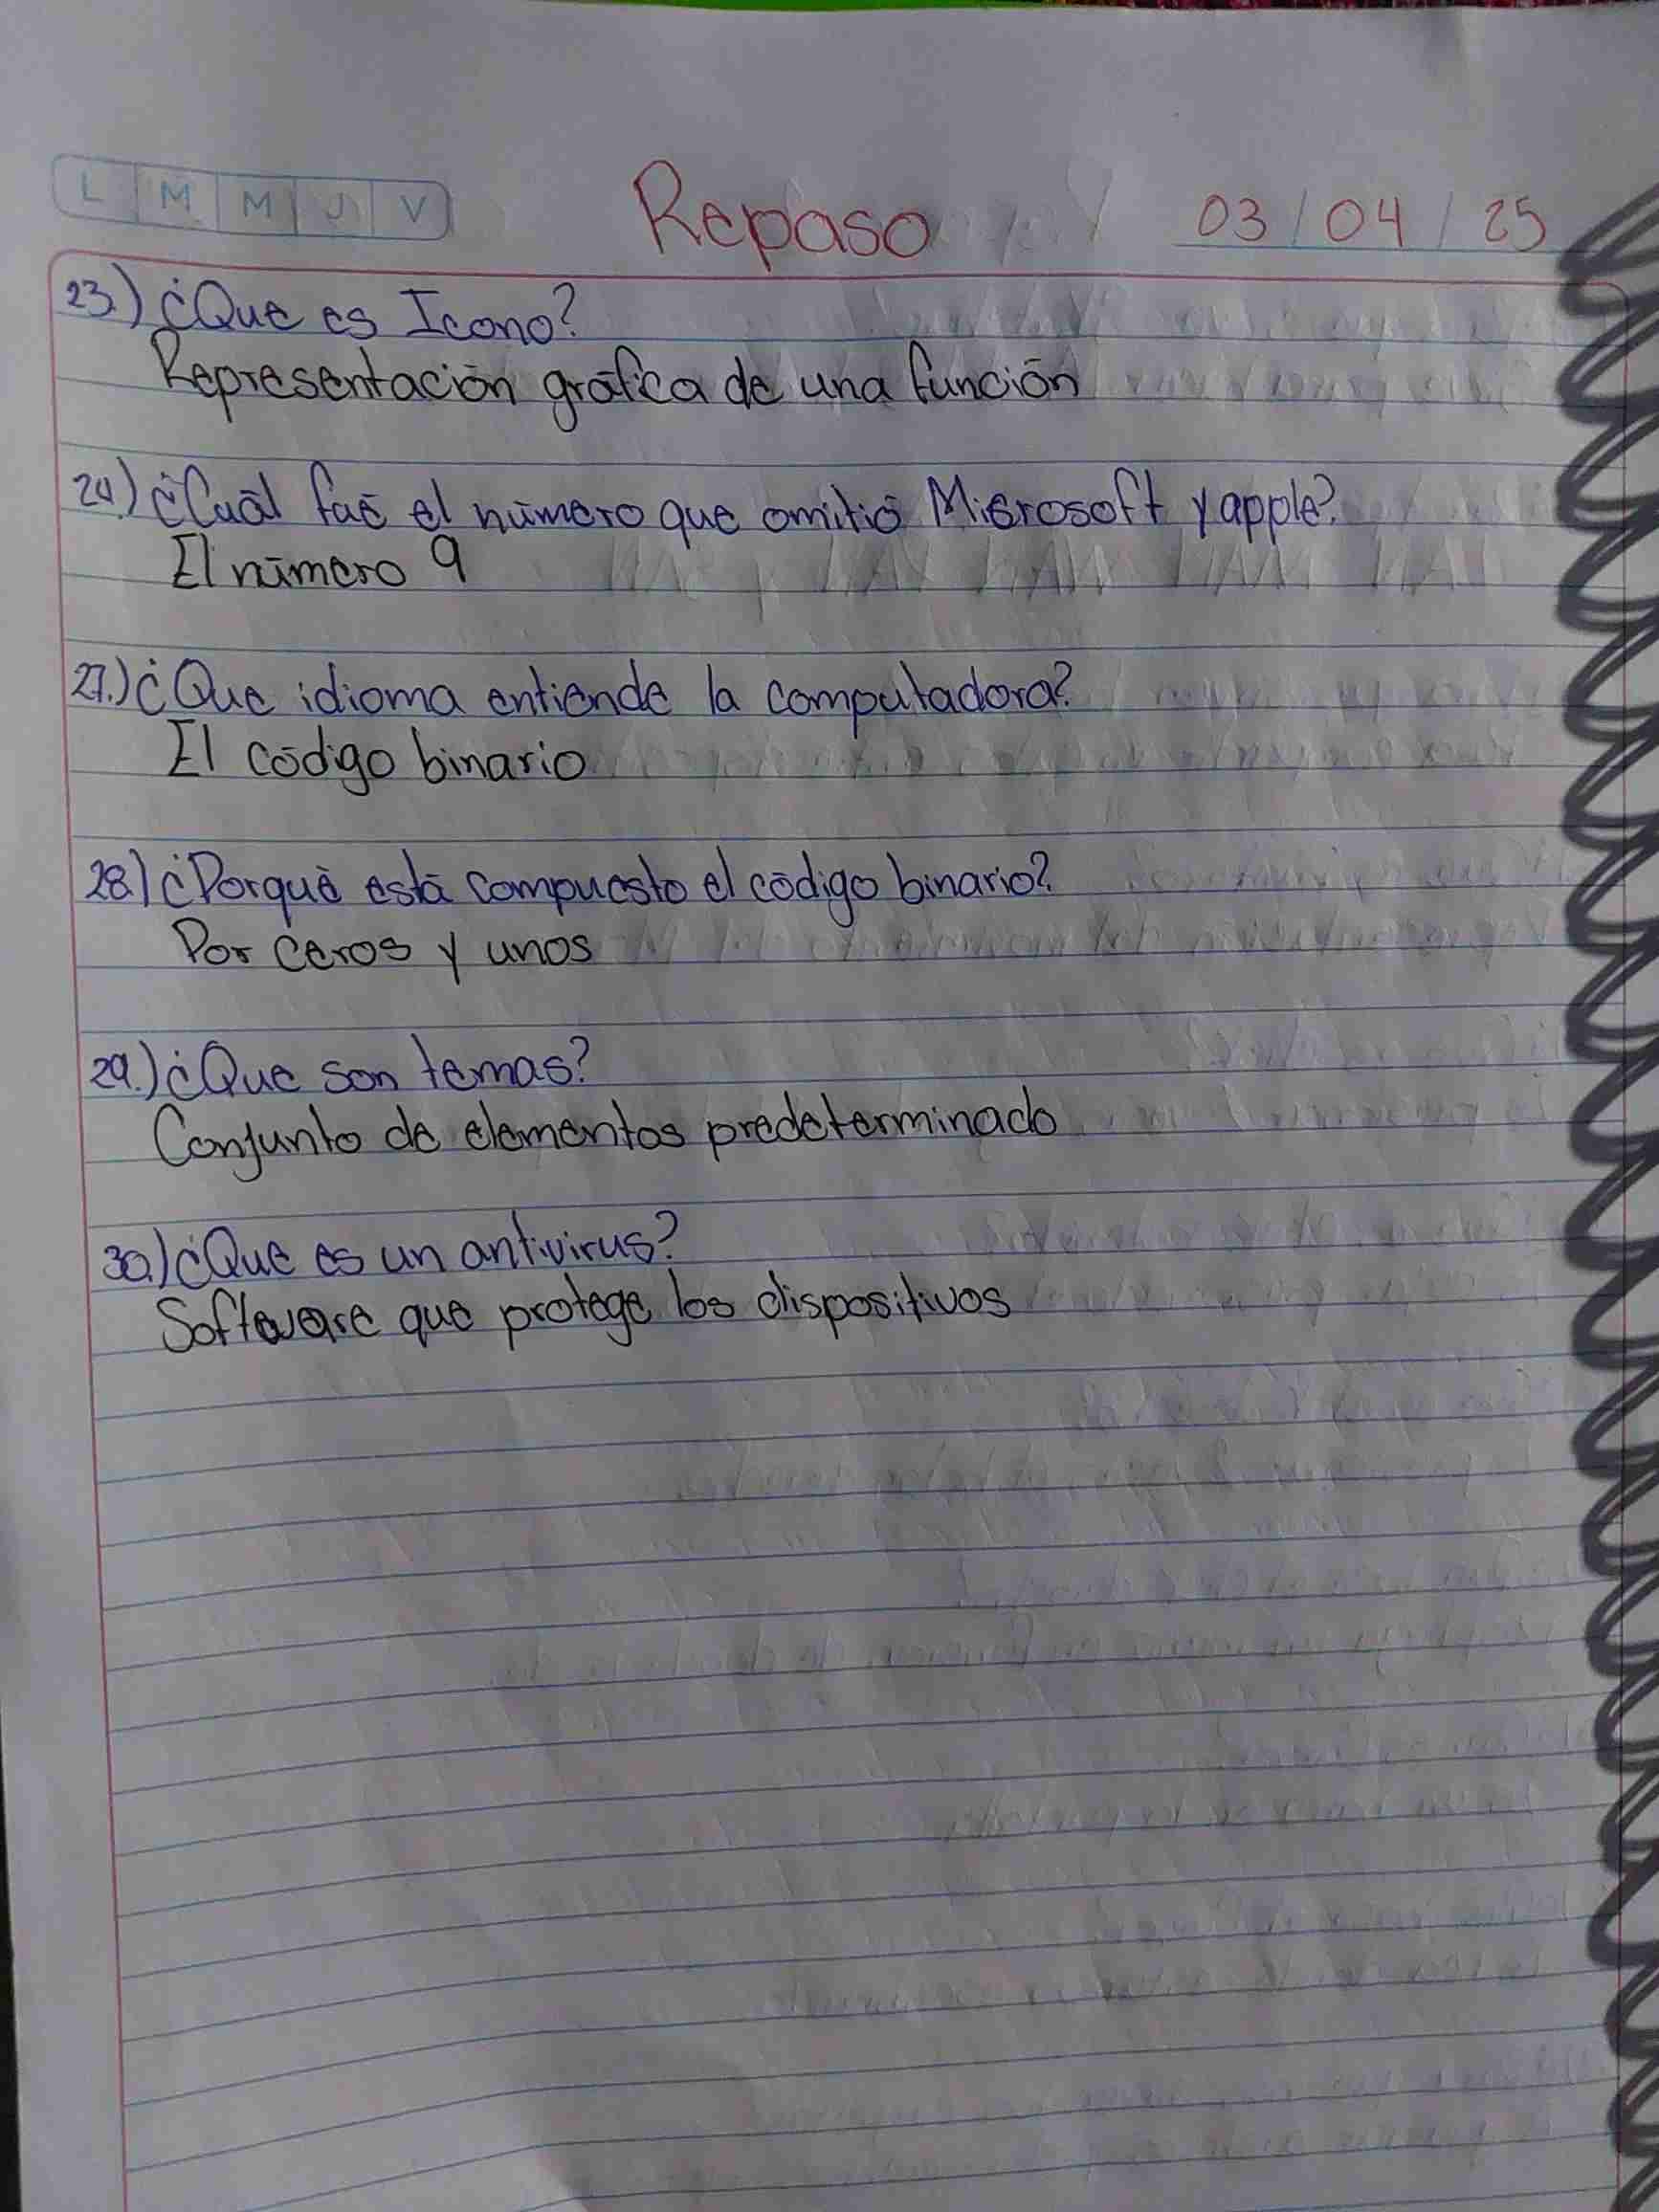 L M M J V
Repaso
03/04/25
23.) ¿Que es Icono?
Representación gráfica de una función
24.) ¿Cuál fué el número que omitió Microsoft y apple?
El número 9
27.) ¿Que idioma entiende la computadora?
El código binario
28.) ¿Porqué está compuesto el código binario?
Por ceros y unos
29.) ¿Que son temas?
Conjunto de elementos predeterminado
30.) ¿Que es un antivirus?
Software que protege los dispositivos